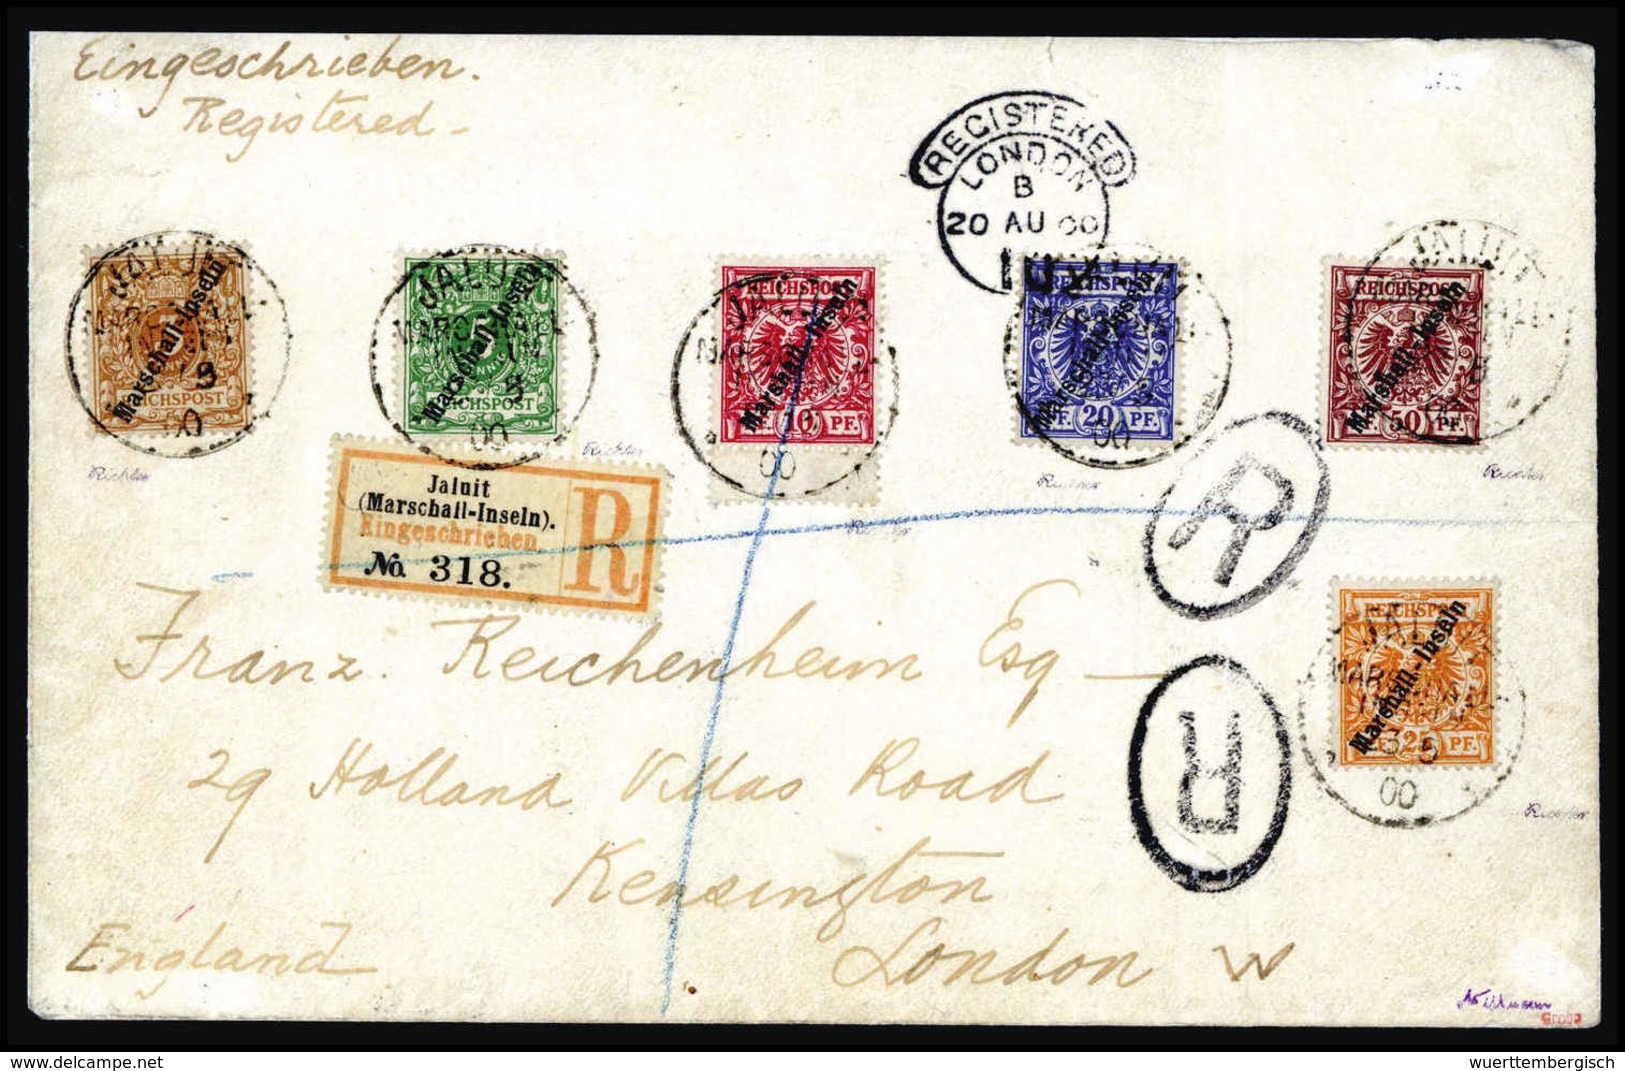 Eingeschrieben.
Registered -
REGISTERED
LONDON
B
20 AU 00
JALUIT
Marschall-Inseln
REICHSPOST
00
JALUIT
Marschall-Inseln
5
REICHSPOST
00
REICHSPOST
Marschall-Inseln
10 PF.
00
Marschall-Inseln
PF. 20 PF.
00
REICHSPOST
JALUIT
Marschall-Inseln
50 PF.
Richter
Richter
Richter
Richter
Jaluit
(Marschall-Inseln).
Eingeschrieben
No. 318.
R
R
REICHSPOST
Marschall-Inseln
25 PF.
00
Richter
R
Franz Reichenheim Esq
29 Holland Villas Road
Kensington
London W
England
delcampe.net
wuerttembergisch